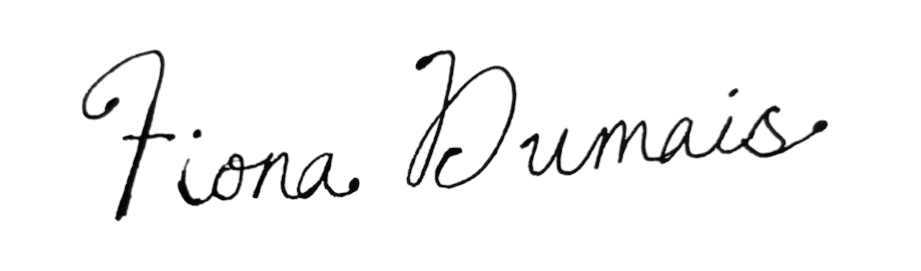 Fiona Dumais